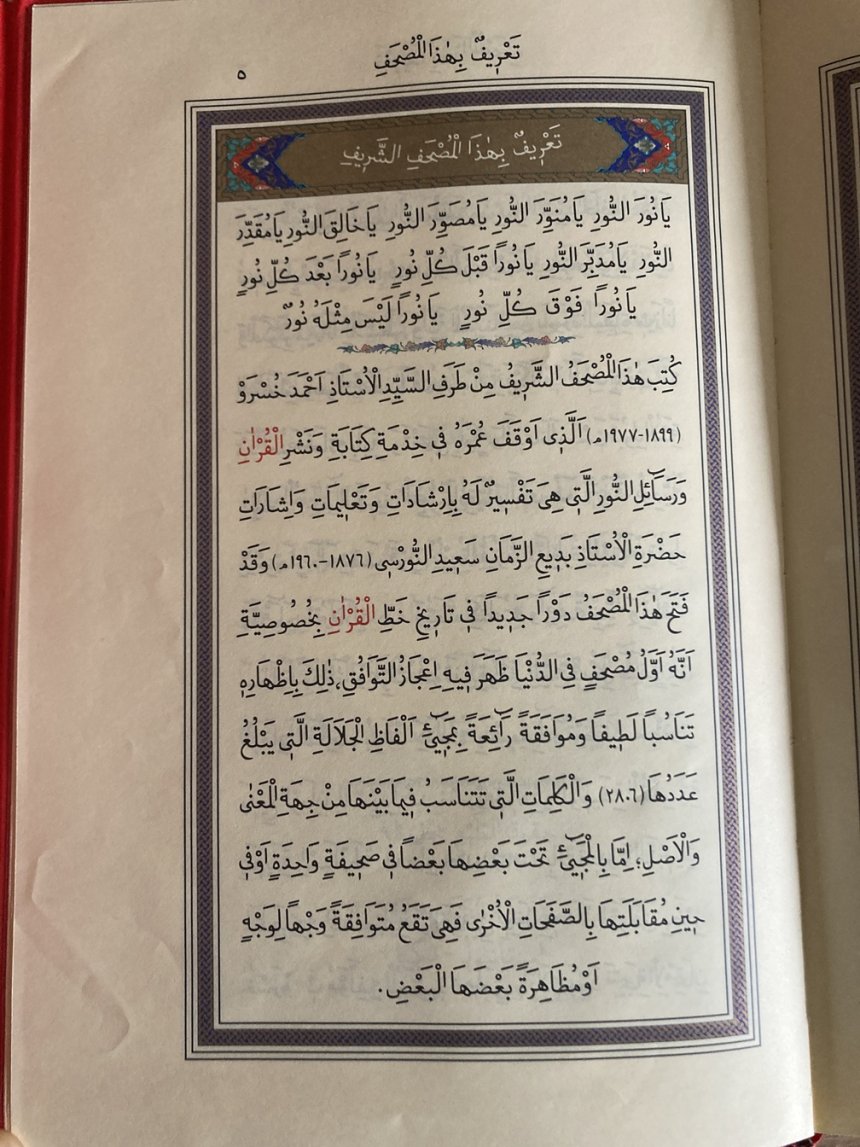 تَعْرِيفٌ بِهٰذَا الْمُصْحَفِ
٥
تَعْرِيفٌ بِهٰذَا الْمُصْحَفِ الشَّرِيفِ
يَا نُورَ النُّورِ يَا مُنَوِّرَ النُّورِ يَا مُصَوِّرَ النُّورِ يَا خَالِقَ النُّورِ يَا مُقَدِّرَ
النُّورِ يَا مُدَبِّرَ النُّورِ يَا نُورًا قَبْلَ كُلِّ نُورٍ يَا نُورًا بَعْدَ كُلِّ نُورٍ
يَا نُورًا فَوْقَ كُلِّ نُورٍ يَا نُورًا لَيْسَ مِثْلَهُ نُورٌ
كُتِبَ هٰذَا الْمُصْحَفُ الشَّرِيفُ مِنْ طَرَفِ السَّيِّدِ الْاُسْتَاذِ اَحْمَدَ خُسْرَوْ
(١٨٩٩-١٩٧٧م) اَلَّذِى اَوْقَفَ عُمْرَهُ فِى خِدْمَةِ كِتَابَةِ وَنَشْرِ الْقُرْاٰنِ
وَرَسَآئِلِ النُّورِ الَّتِى هِىَ تَفْسِيرٌ لَهُ بِاِرْشَادَاتِ وَتَعْلِيمَاتِ وَاِشَارَاتِ
حَضْرَةِ الْاُسْتَاذِ بَدِيعِ الزَّمَانِ سَعِيدِ النُّورْسِى (١٨٧٦-١٩٦٠م) وَقَدْ
فَتَحَ هٰذَا الْمُصْحَفُ دَوْرًا جَدِيدًا فِى تَارِيخِ خَطِّ الْقُرْاٰنِ بِخُصُوصِيَّةِ
اَنَّهُ اَوَّلُ مُصْحَفٍ فِى الدُّنْيَا ظَهَرَ فِيهِ اِعْجَازُ التَّوَافُقِ، ذٰلِكَ بِاِظْهَارِهِ
تَنَاسُبًا لَطِيفًا وَمُوَافَقَةً رَآئِعَةً بِمَجِىٓءِ اَلْفَاظِ الْجَلَالَةِ الَّتِى يَبْلُغُ
عَدَدُهَا (٢٨٠٦) وَالْكَلِمَاتِ الَّتِى تَتَنَاسَبُ فِيمَا بَيْنَهَا مِنْ جِهَةِ الْمَعْنٰى
وَالْاَصْلِ؛ اِمَّا بِالْمَجِىٓءِ تَحْتَ بَعْضِهَا بَعْضًا فِى صَحِيفَةٍ وَاحِدَةٍ اَوْ فِى
حِينِ مُقَابَلَتِهَا بِالصَّفَحَاتِ الْاُخْرٰى فَهِىَ تَقَعُ مُتَوَافِقَةً وَجْهًا لِوَجْهٍ
اَوْ مُظَاهِرَةً بَعْضَهَا الْبَعْضِ.